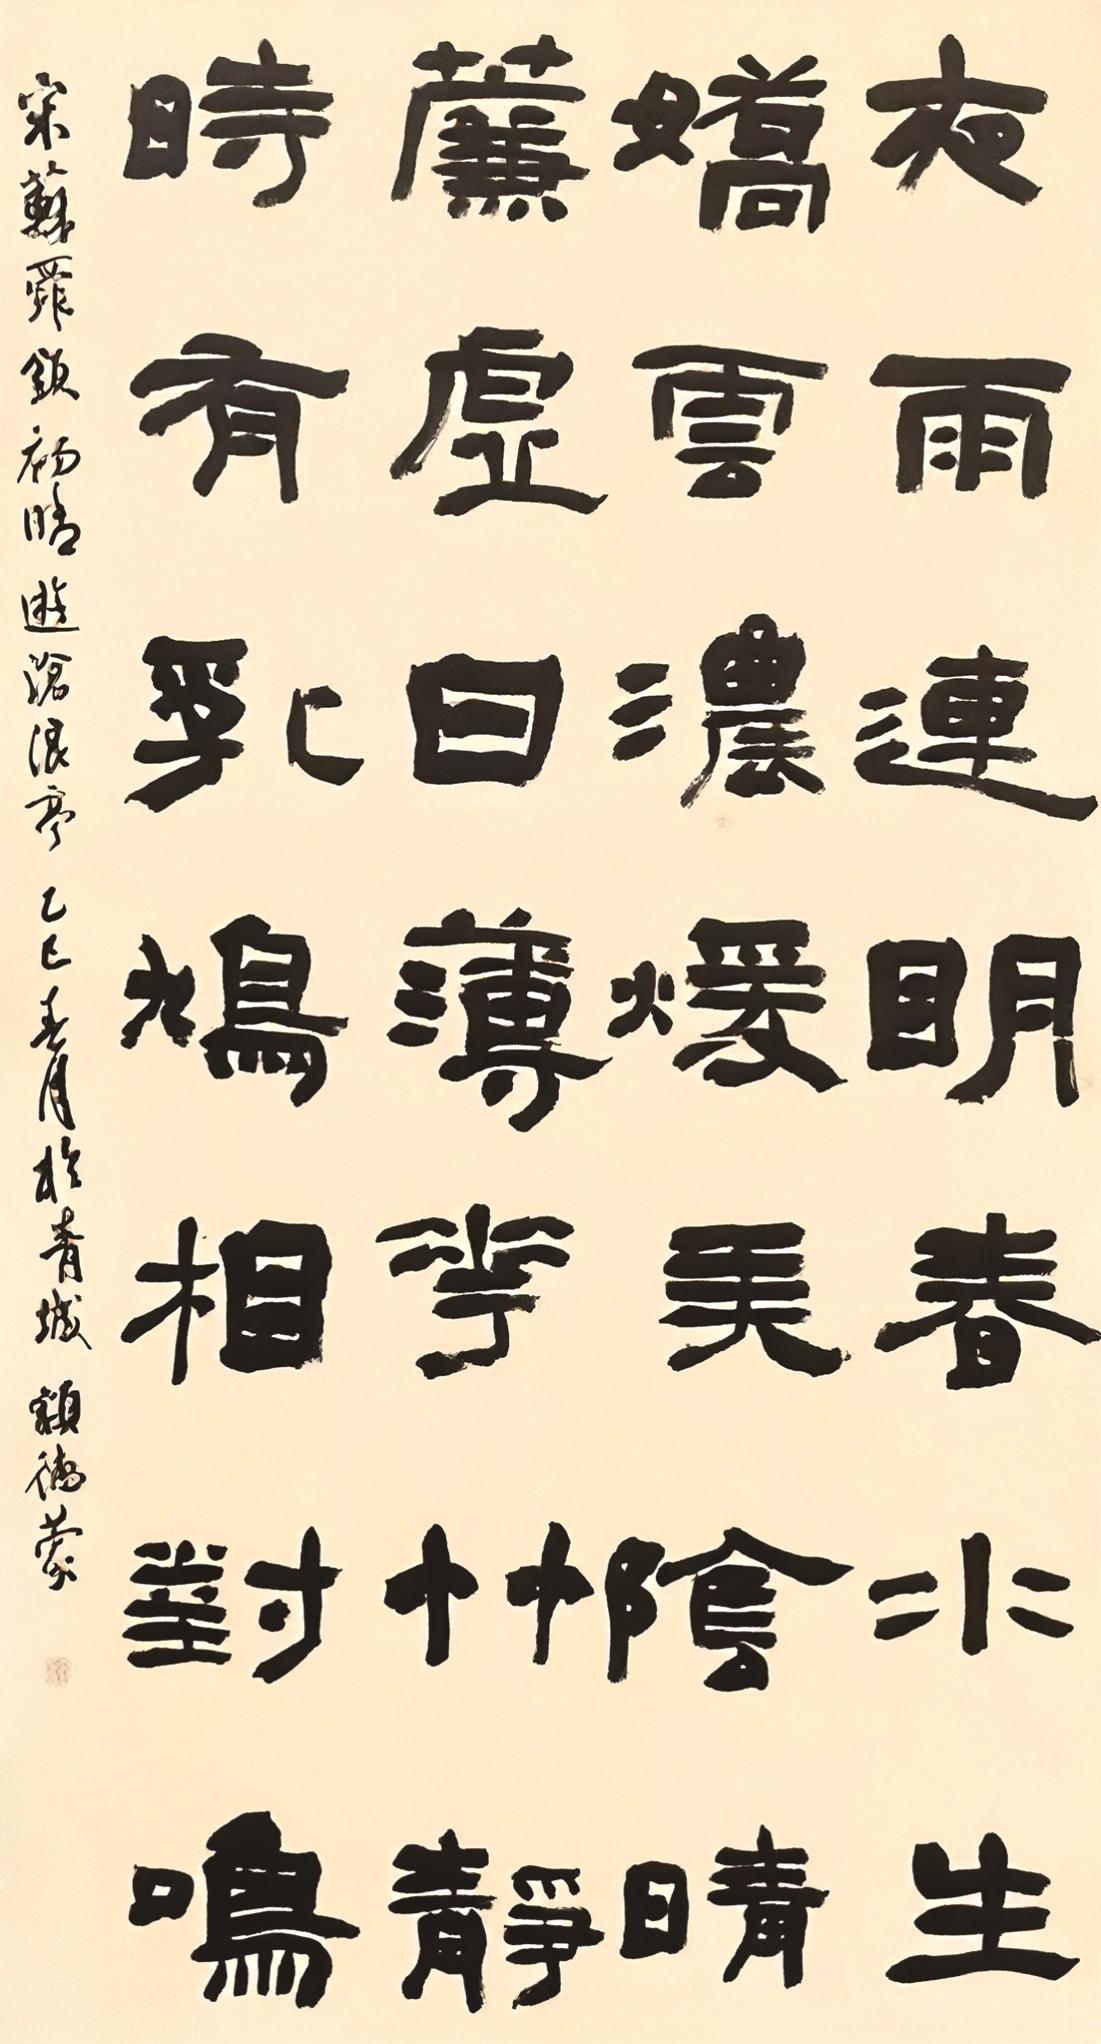 夜雨連明春水生
嬌雲濃煖弄陰晴
簾虛日薄花竹靜
時有乳鳩相對鳴
宋蘇舜欽初晴遊滄浪亭 乙巳春月於青城 額德蒙